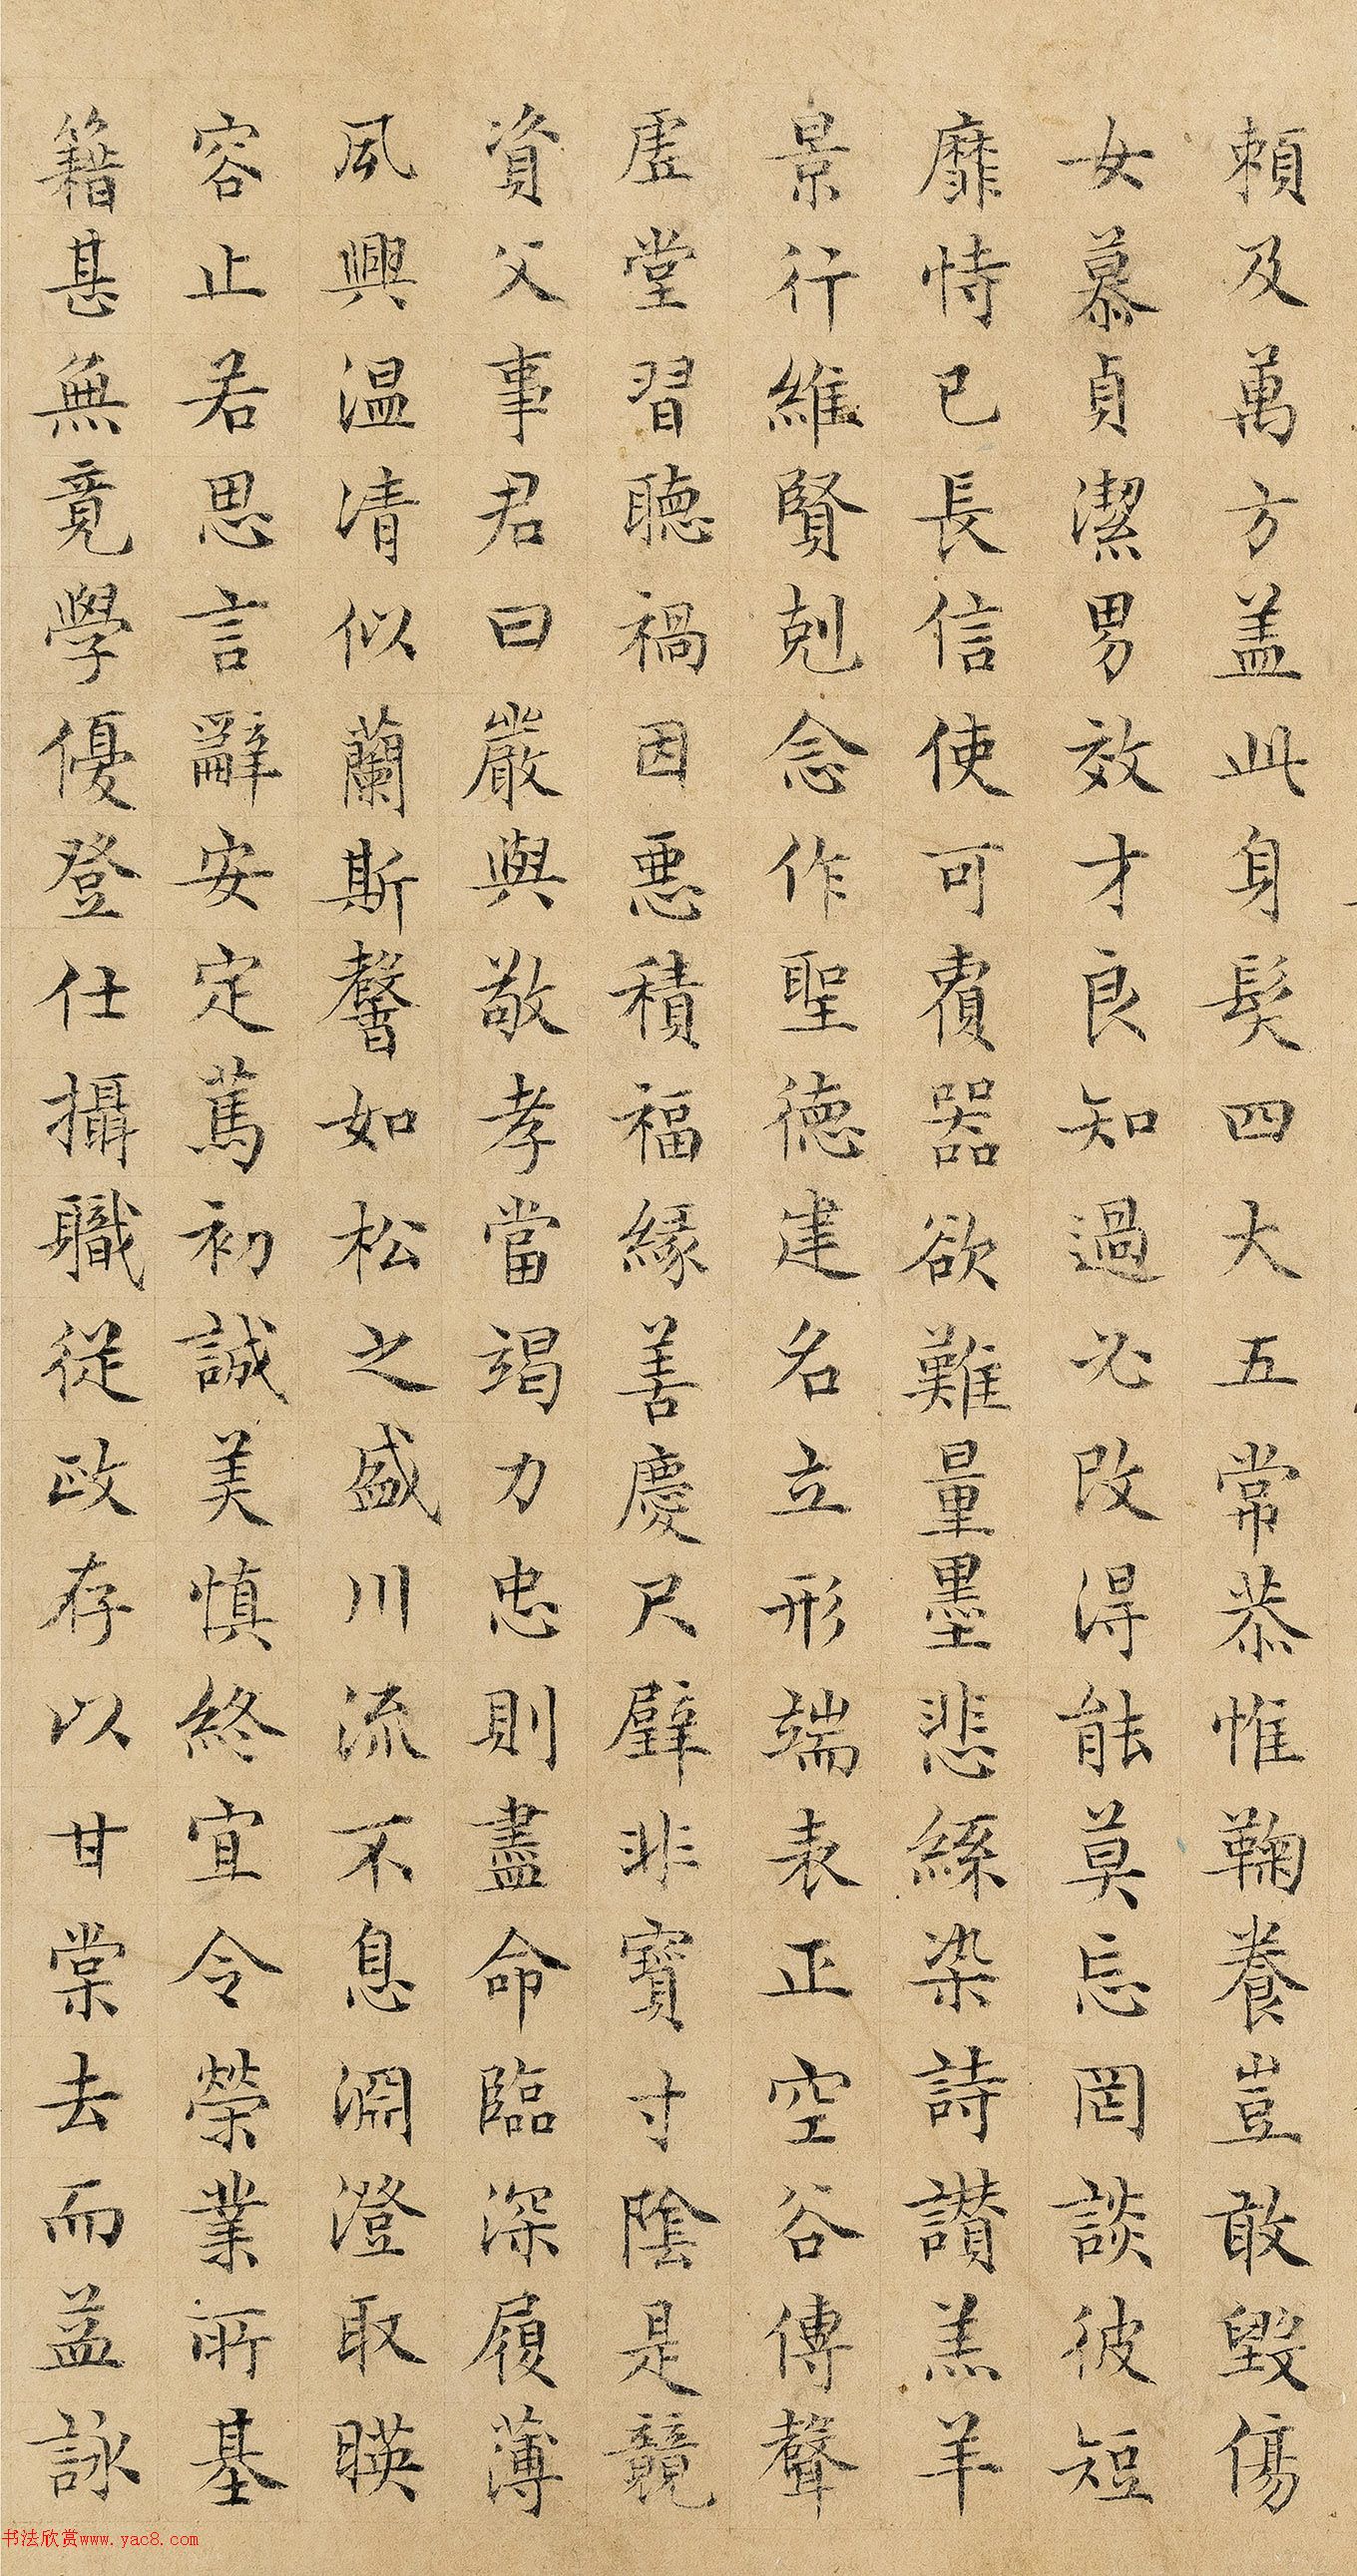 賴及萬方盖此身髮四大五常恭惟鞠養豈敢毀傷
女慕貞潔男效才良知過必改得能莫忘罔談彼短
靡恃已長信使可覆器欲難量墨悲絲染詩讃羔羊
景行維賢剋念作聖德建名立形端表正空谷傳聲
虛堂習聽禍因惡積福緣善慶尺璧非寶寸陰是競
資父事君曰嚴與敬孝當竭力忠則盡命臨深履薄
夙興温凊似蘭斯馨如松之盛川流不息淵澄取暎
容止若思言辭安定篤初誠美慎終宜令榮業所基
籍甚無竟學優登仕攝職從政存以甘棠去而益詠
书法欣赏www.yac8.com